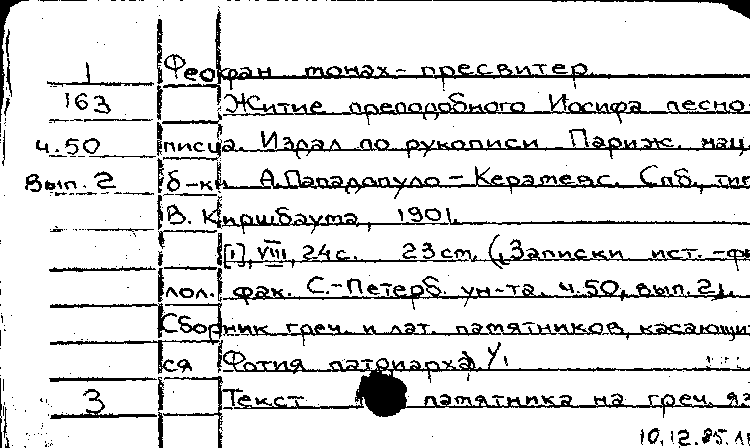 1 Феофан монах-пресвитер.
163 Житие преподобного Иосифа песно-
ч.50 писца. Издал по рукописи Париж. нац.
Вып. 2 б-ки А.Пападопуло-Керамевс. Спб., тип
В. Киршбаума, 1901.
[1], VIII, 24 с. 23 см. (Записки ист.-фи
лол. фак. С.-Петерб. ун-та. ч.50, вып. 2).
Сборник греч. и лат. памятников, касающи
ся Фотия патриарха. V.
3 Текст памятника на греч. яз
10.12.85.